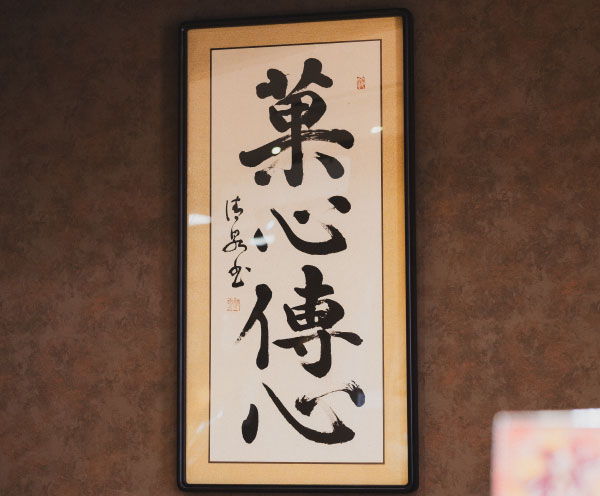 菓心傳心
清泉書